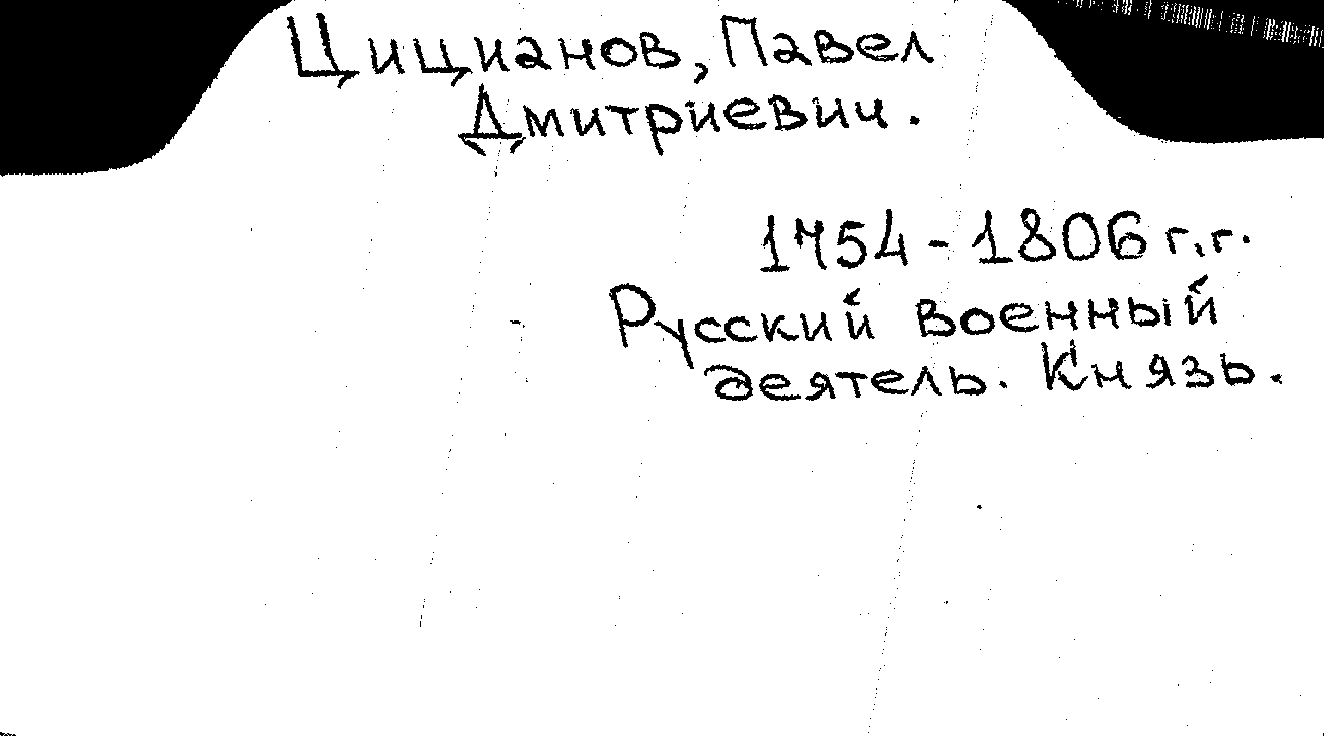 Цицианов, Павел
Дмитриевич.
1754-1806 г.г.
Русский военный
деятель. Князь.